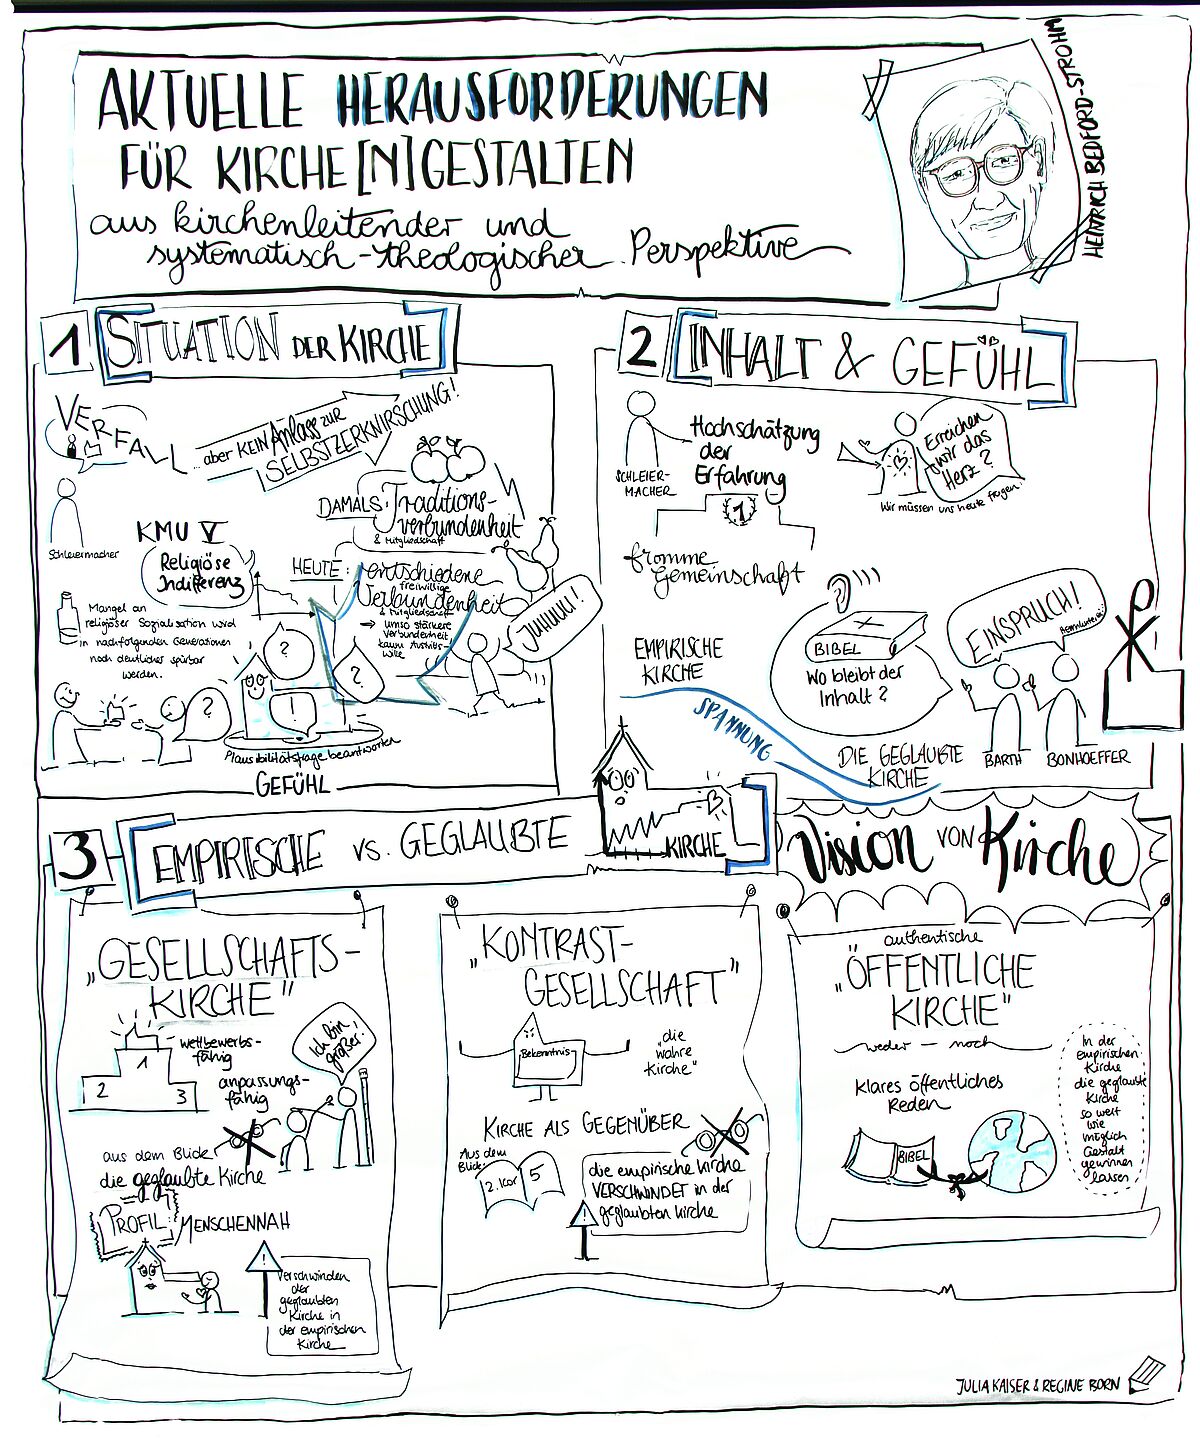 AKTUELLE HERAUSFORDERUNGEN
FÜR KIRCHE[N]GESTALTEN
aus kirchenleitender und
systematisch-theologischer Perspektive
HEINRICH BEDFORD-STROHM
1 SITUATION DER KIRCHE
VERFALL
...aber KEIN Anlass ZUR
SELBSTZERKNIRSCHUNG!
Schleiermacher
KMU V
Religiöse
Indifferenz
DAMALS: Traditions-
verbundenheit
& Mitgliedschaft
HEUTE: entschiedene
freiwillige
Verbundenheit
& Mitgliedschaft
→ umso stärkere
Verbundenheit,
kaum Austritts-
wille
JUHUUU!
Mangel an
religiöser Sozialisation wird
in nachfolgenden Generationen
noch deutlicher spürbar
werden.
?
?
?
!
Plausibilitätsfrage beantworten
GEFÜHL
2 INHALT & GEFÜHL
SCHLEIER-
MACHER
Hochschätzung
der
Erfahrung
1
fromme
Gemeinschaft
Erreichen
wir das
Herz?
Wir müssen uns heute fragen:
EMPIRISCHE
KIRCHE
SPANNUNG
BIBEL
Wo bleibt der
Inhalt?
DIE GEGLAUBTE
KIRCHE
EINSPRUCH!
BARTH
BONHOEFFER
3 EMPIRISCHE VS. GEGLAUBTE KIRCHE
„GESELLSCHAFTS-
KIRCHE"
wettbewerbs-
fähig
1
2
3
anpassungs-
fähig
Ich bin
größer!
aus dem Blick:
die geglaubte Kirche
PROFIL: MENSCHENNAH
!
Verschwinden
der
geglaubten
Kirche in
der empirischen
Kirche
„KONTRAST-
GESELLSCHAFT"
Bekenntnis
„die
wahre
Kirche"
KIRCHE ALS GEGENÜBER
Aus dem
Blick:
2. Kor 5
die empirische Kirche
VERSCHWINDET in der
geglaubten Kirche
!
Vision VON Kirche
authentische
„ÖFFENTLICHE
KIRCHE"
weder – noch
klares öffentliches
Reden
BIBEL
In der
empirischen
Kirche
die geglaubte
Kirche
so weit
wie
möglich
Gestalt
gewinnen
lassen
JULIA KAISER & REGINE BORN